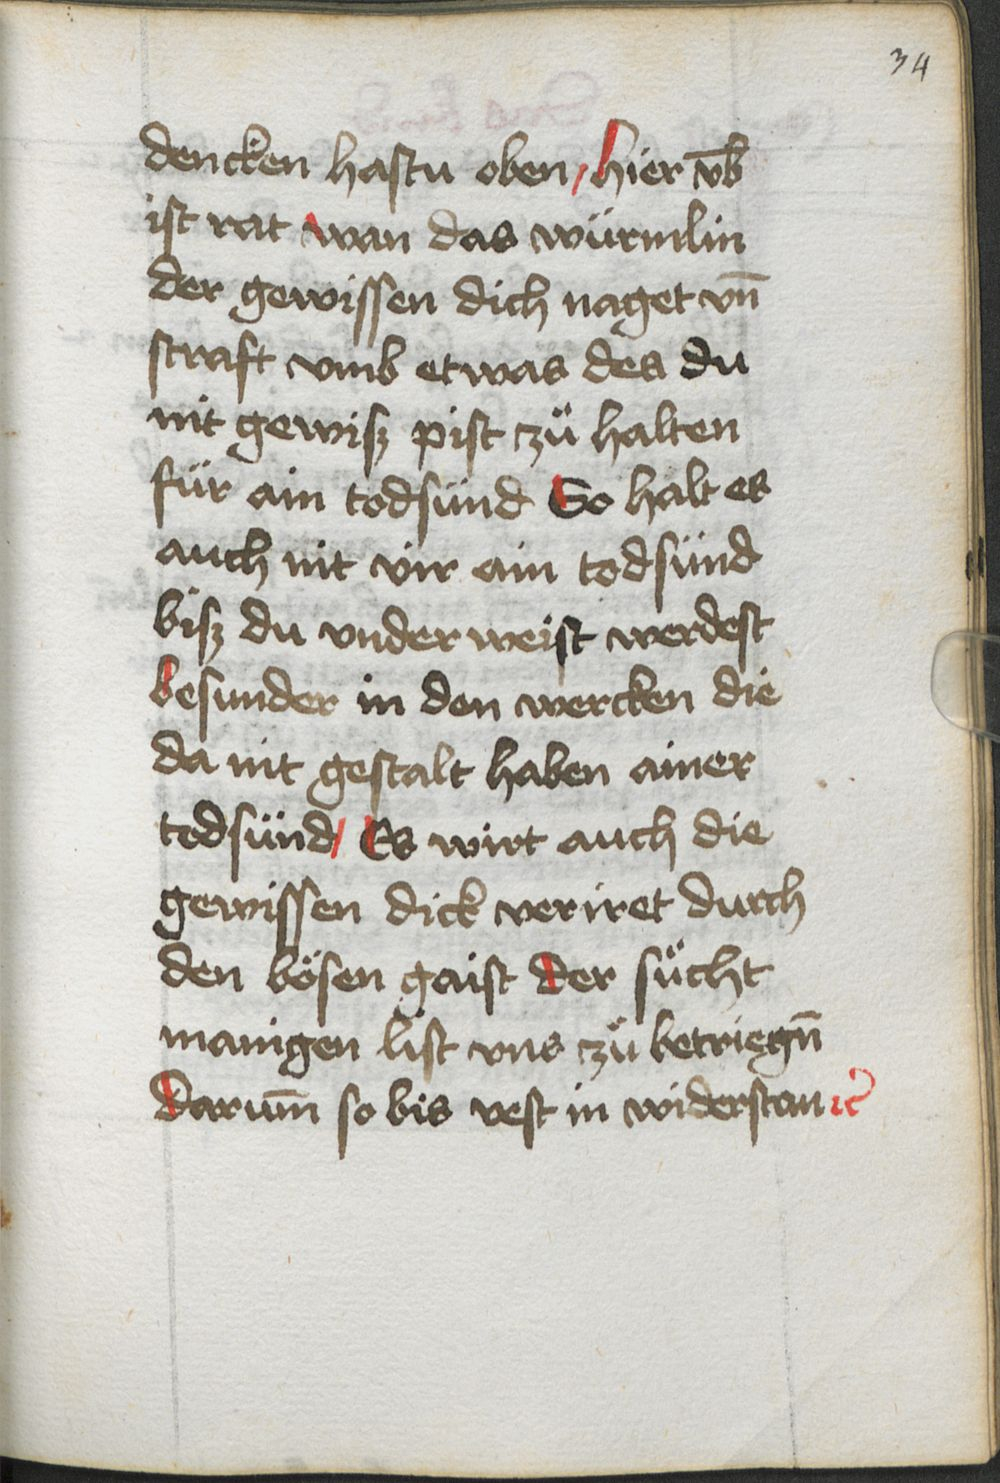 34
dencken hastu oben / hier vb̄
ist rat wan das würmlin
der gewissen dich naget vn̄
straft vmb etwas des du
nit gewisz pist zů halten
für ain todsünd So halt es
auch nit vir ain todsünd
bisz du vnderweist werdest
besunder in den wercken die
da nit gestalt haben ainer
todsünd / Es wirt auch die
gewissen dick veriret durch
den bösen gaist der sücht
manigen list vns zů betriegn̄
darum̄ so bis vest in widerstan ꝛc